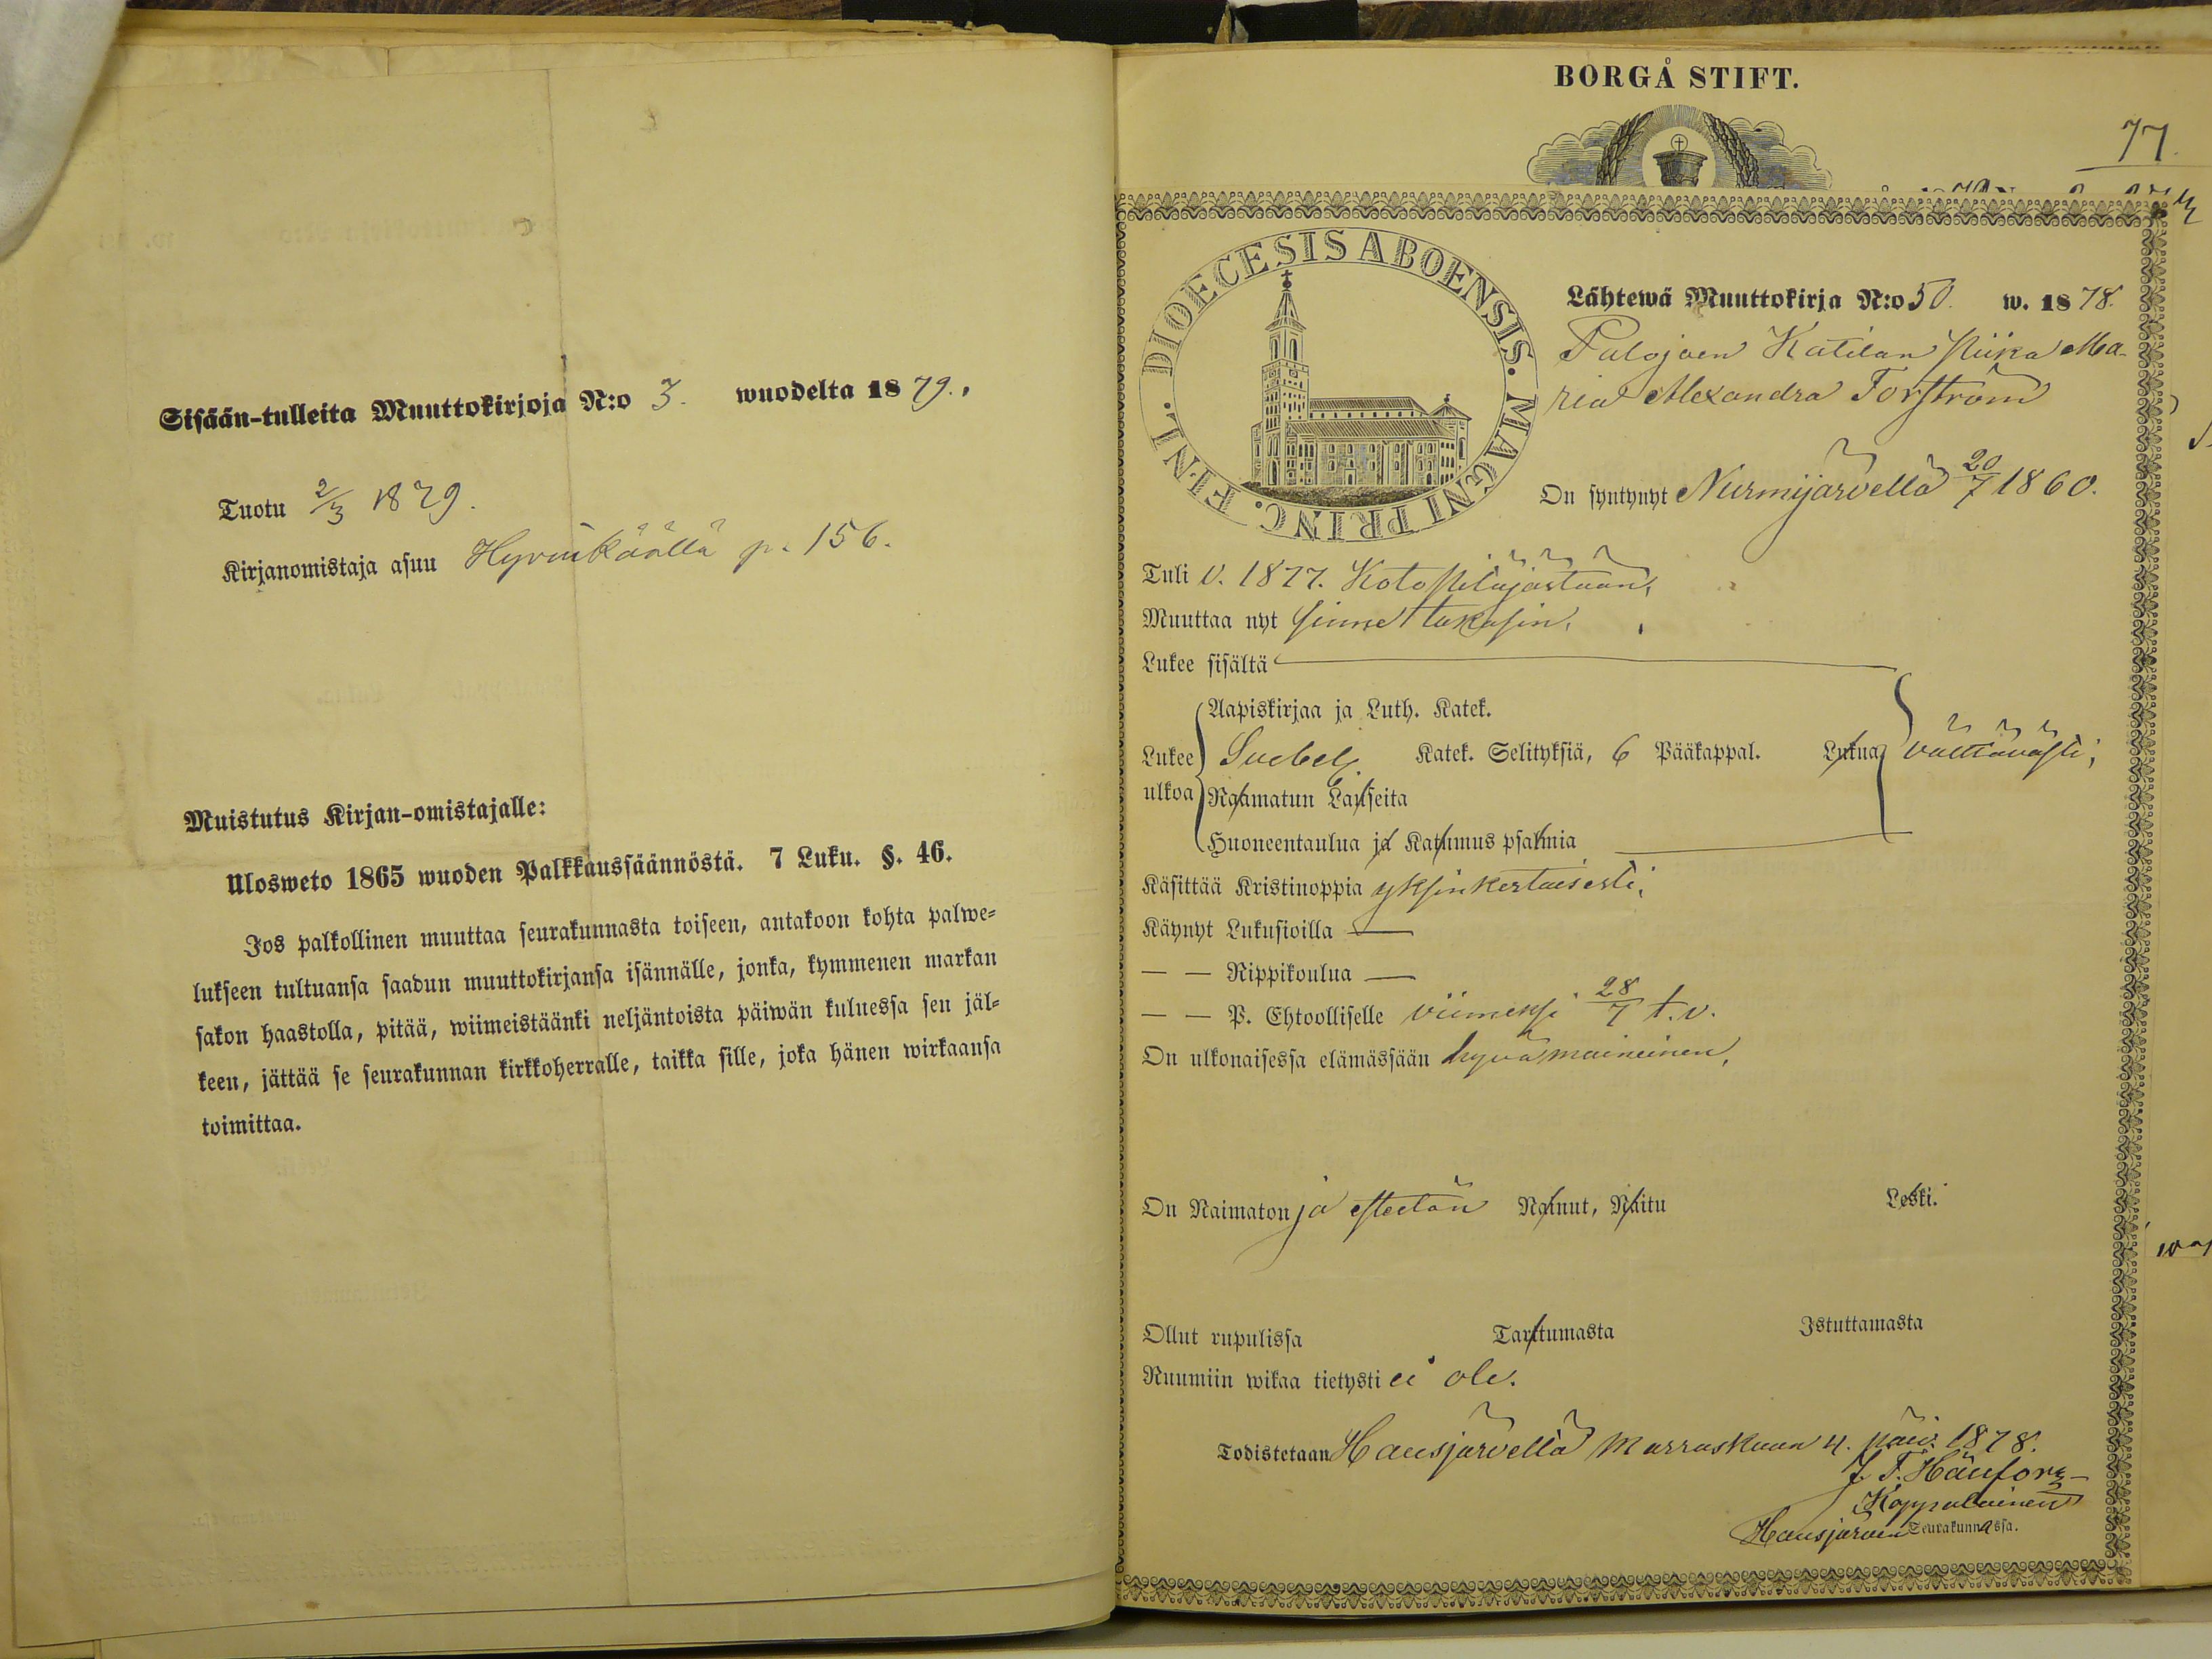 Sisään-tulleita Muuttokirjoja N:o 3. wuodelta 1879.
Tuotu 2/3 1879.
Kirjanomistaja asuu Hyvinkäällä p. 156.
Muistutus Kirjan-omistajalle:
Ulosweto 1865 wuoden Palkkaussäännöstä. 7 Luku. §. 46.
Jos palkollinen muuttaa seurakunnasta toiseen, antakoon kohta palwe=
lukseen tultuansa saadun muuttokirjansa isännälle, jonka, kymmenen markan
sakon haastolla, pitää, wiimeistäänki neljäntoista päiwän kuluessa sen jäl=
keen, jättää se seurakunnan kirkkoherralle, taikka sille, joka hänen wirkaansa
toimittaa.
BORGÅ STIFT.
77.
DIOECESIS ABOENSIS. MAGNI PRINC. FINL.
Lähtewä Muuttokirja N:o 50. w. 1878.
Palojoen Katilan piika Ma-
ria Alexandra Forström
On syntynyt Nurmijärvellä 20/7 1860.
Tuli v. 1877. Kotopitäjästään,
Muuttaa nyt sinne takasin.
Lukee sisältä
Aapiskirjaa ja Luth. Katek.
Lukee Svebel. Katek. Selityksiä, 6 Pääkappal. Lukua välttävästi,
ulkoa Raamatun Lauseita
Huoneentaulua ja Katumus psalmia
Käsittää Kristinoppia yksinkertaisesti,
Käynyt Lukusioilla —
— — Rippikoulua —
— — P. Ehtoolliselle viimeksi 28/7 t.v.
On ulkonaisessa elämässään hyvämaineinen,
On Naimaton ja esteetön Nainut, Naitu Leski.
Ollut rupulissa Tarttumasta Istuttamasta
Ruumiin wikaa tietysti ei ole.
Todistetaan Hausjärvellä Marraskuun 4. päiv. 1878.
Kappalainen
Hausjärven Seurakunnassa.